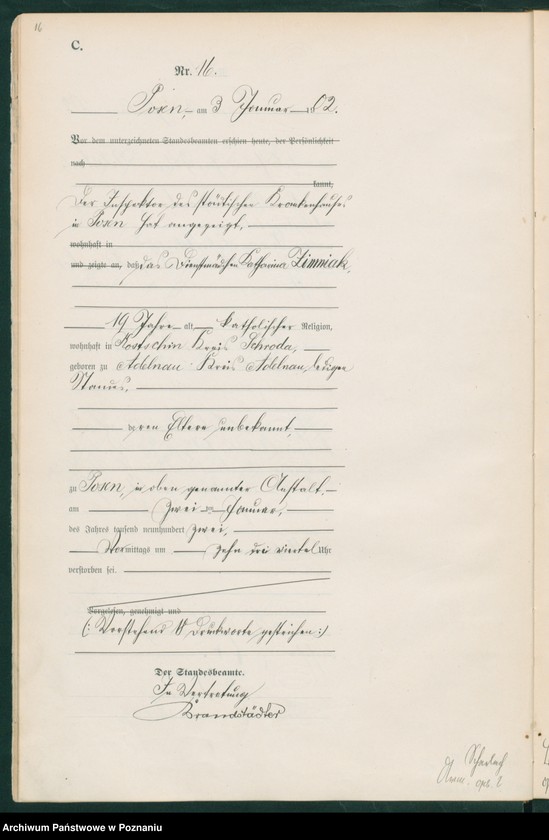 16
C.
Nr. 16.
Posen, am 3 Januar 1902.
Vor dem unterzeichneten Standesbeamten erschien heute, der Persönlichkeit
nach
kannt,
Der Inspektor des städtischen Krankenhauses
in Posen hat angezeigt,
wohnhaft in
und zeigte an, daß das Dienstmädchen Katharina Zimniak,
19 Jahre alt, katholischer Religion,
wohnhaft in Kostschin Kreis Schroda,
geboren zu Adelnau Kreis Adelnau, ledigen
Standes,
deren Eltern unbekannt,
zu Posen, in oben genannter Anstalt
am zwei ten Januar,
des Jahres tausend neunhundert zwei,
Vormittags um zehn drei viertel Uhr
verstorben sei.
Vorgelesen, genehmigt und
(: Vorstehend Druckworte gestrichen :)
Der Standesbeamte.
In Vertretung
Brandstädter
Scharlach
Archiwum Państwowe w Poznaniu